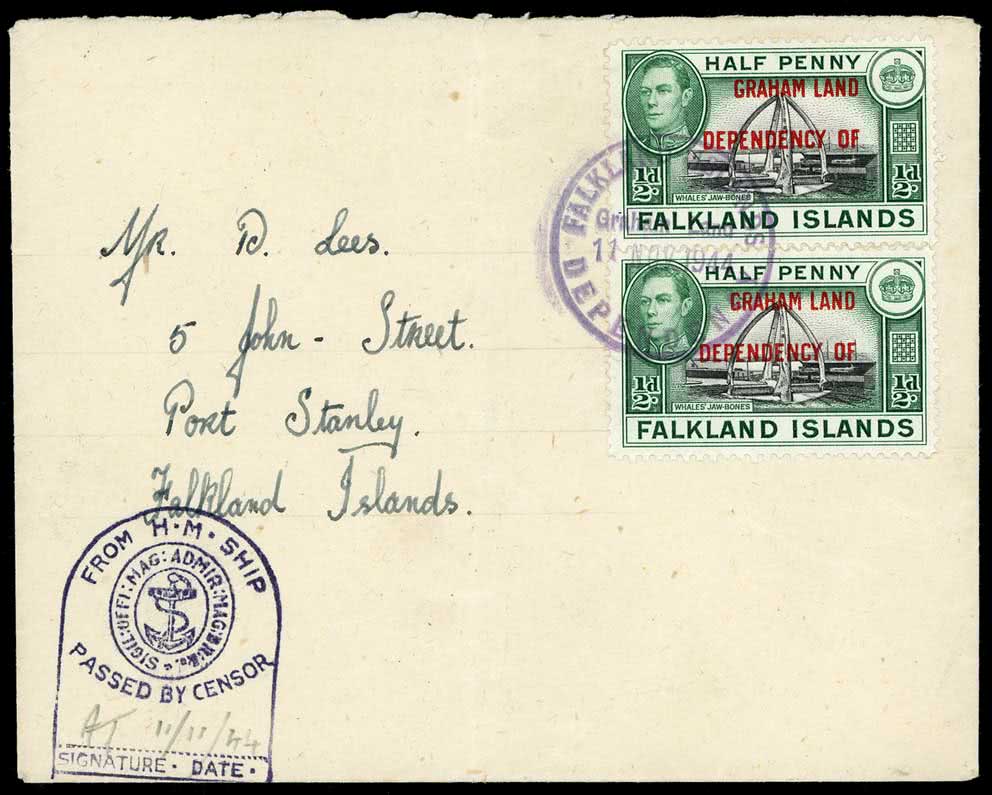 HALF PENNY
GRAHAM LAND
DEPENDENCY OF
½d
WHALES' JAW-BONES
FALKLAND ISLANDS
HALF PENNY
GRAHAM LAND
DEPENDENCY OF
½d
WHALES' JAW-BONES
FALKLAND ISLANDS
11 NOV 1944
Mr. D. Lees.
5 John - Street.
Port Stanley.
Falkland Islands.
FROM H·M·SHIP
SIGIL:OFFI:MAG:ADMIR:MAG:BR:
PASSED BY CENSOR
11/11/44
SIGNATURE · DATE ·